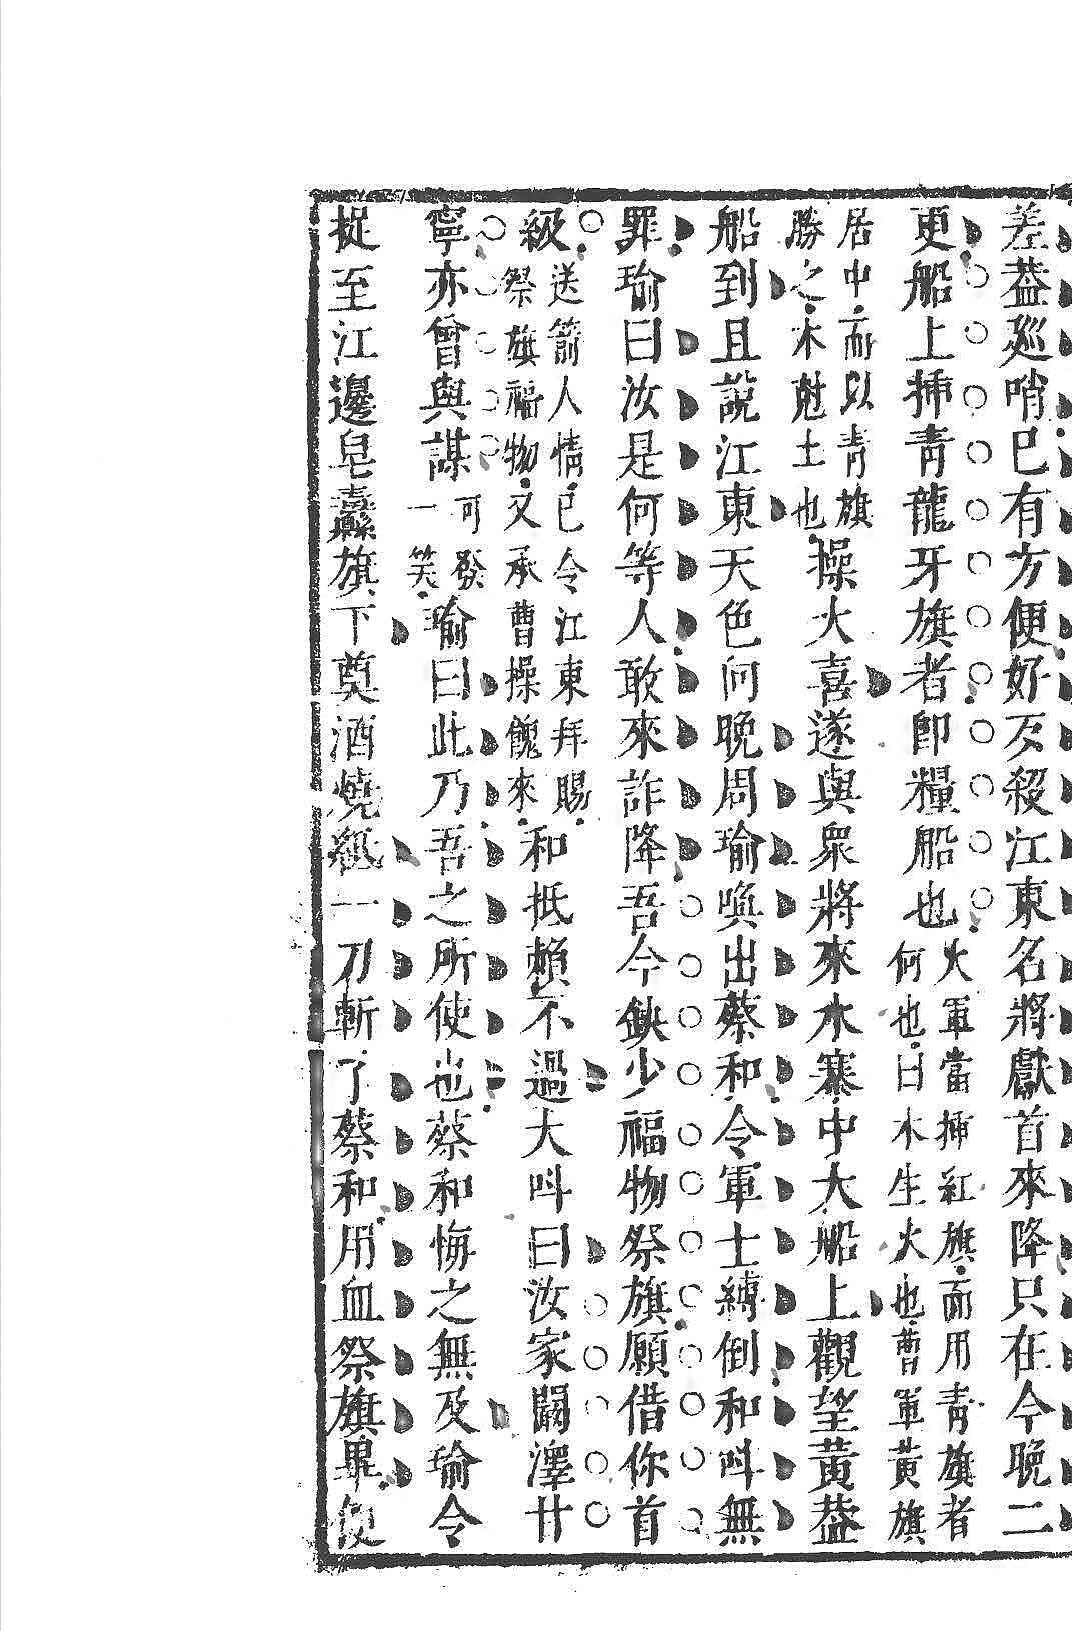 差葢廵哨已有方便好歹殺江東名將獻首來降只在今晚二
更船上揷靑龍牙旗者卽糧船也火軍當揷紅旗而用靑旗者
何也曰木生火也曹軍黃旗
居中而以靑旗
勝之木尅土也操大喜遂與衆將來水寨中大船上觀望黃葢
船到且說江東天色向晚周瑜喚出蔡和令軍士縛倒和呌無
罪瑜曰汝是何等人敢來詐降吾今缺少福物祭旗願借你首
級送箭人情已令江東拜賜
祭旗福物又承曹操餽來和抵賴不過大呌曰汝家闞澤甘
寧亦曾與謀可發
一笑瑜曰此乃吾之所使也蔡和悔之無及瑜令
捉至江邊皂纛旗下奠酒燒紙一刀斬了蔡和用血祭旗畢便